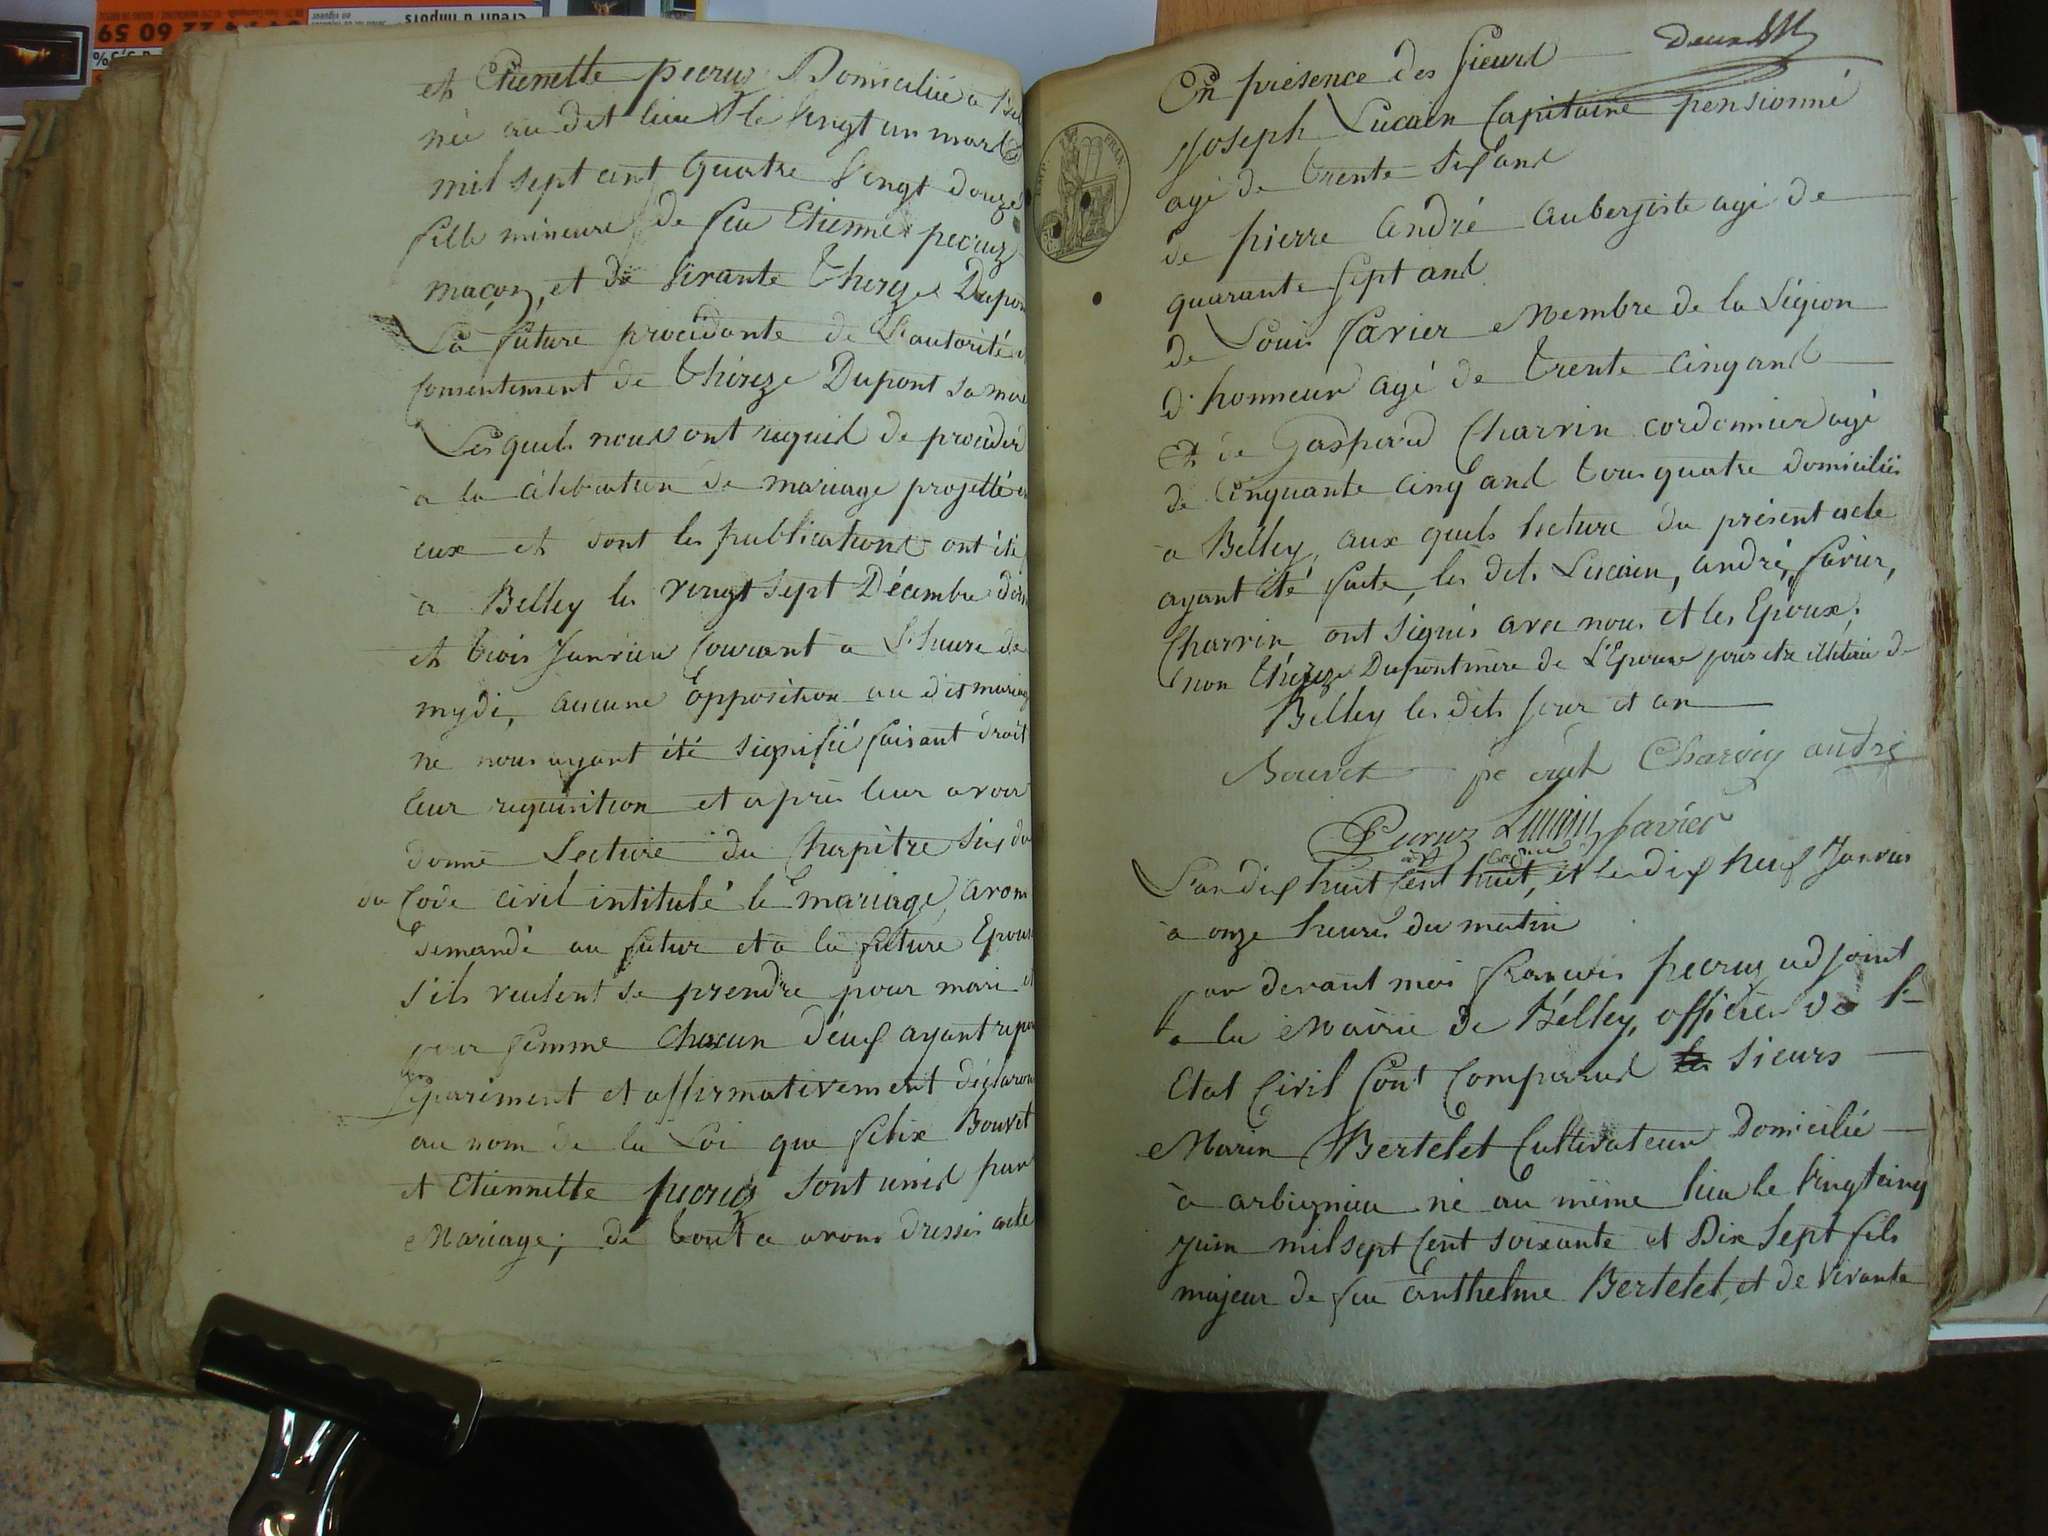 et Etienette pecruz Domiciliée a Bel
née au dit lieu le vingt un mars
mil sept cent quatre vingt douze
fille mineure de feu Etienne pecruz
maçon, et de vivante Therèze Dupon
La future procédante de l'autorité et
consentement de thérèze Dupont sa mere
Les quels nous ont requis de procéder
a la célébration de mariage projetté en
eux et dont les publications ont été
à Belley les vingt sept Décembre der
et trois Janvier courant a l'heure de
mydi, aucune opposition au dit mariag
ne nous ayant été signifié faisant droit
leur requisition et après leur avoir
donné Lecture du Chapitre six du
du Code civil intitulé le mariage, avons
demandé au futur et a la future Epouse
s'ils veulent se prendre pour mari et
pour femme chacun d'eux ayant repon
séparément et affirmativement déclarons
au nom de la Loi que felix Bouvet
et Etiennette pecruz sont unis par
Mariage; de tout a avons dressé acte
En présence des sieurs
Joseph Lucain Capitaine pensionné
agé de trente six ans
de pierre andré aubergiste agé de
quarante sept ans
de Louis favier Membre de la Légion
d'honneur agé de trente cinq ans
et de Gaspard Charvin cordonnier agé
de cinquante cinq ans tous quatre domiciliés
à Belley, aux quels lecture du présent acte
ayant été faite, les dits Lucain, andré, favier,
Charvin ont signés avec nous et les Epoux,
non thérèze Dupont mère de L'Epouse pour etre illiterée de
Belley les dits jour et an
Bouvet Charvin andré
Pecruz Lucain favier
L'an dix huit cent huit, et le dix neuf Janvier
à onze heures du matin
par devant moi francois pecruz adjoint
a la Mairie de Bélley, officier de l'
Etat Civil sont comparus sieurs
Marin Bertelet Cultivateur Domicilié
à arbignieu né au même lieu le vingt cinq
juin mil sept cent soixante et Dix sept fils
majeur de feu anthelme Bertelet, et de vivante